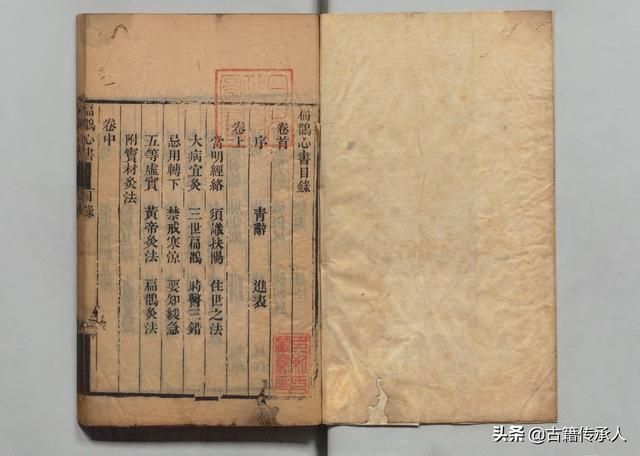 扁鵲心書目錄
卷首
序 青辭 進表
卷上
當明經絡 須識扶陽 住世之法
大病宜灸 三世扁鵲 時醫三錯
忌用轉下 禁戒寒涼 要知緩急
五等虛實 黃帝灸法 扁鵲灸法
附竇材灸法
卷中
扁鵲心書 目錄
头条 @古籍传承人